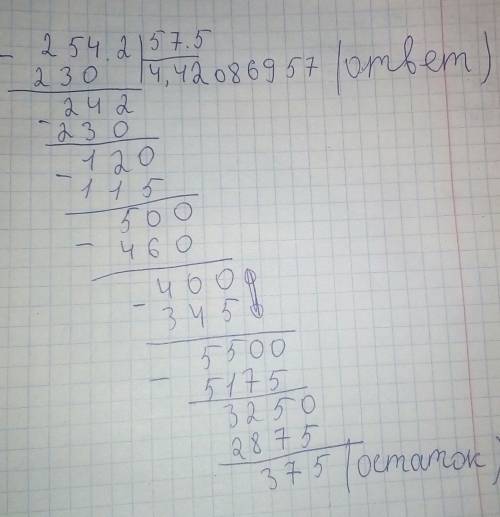 - 254.2 | 57.5
230 | 4,42086957 (ответ)
242
- 230
120
- 115
500
- 460
400
- 345
5500
- 5175
3250
2875
375 (остаток)